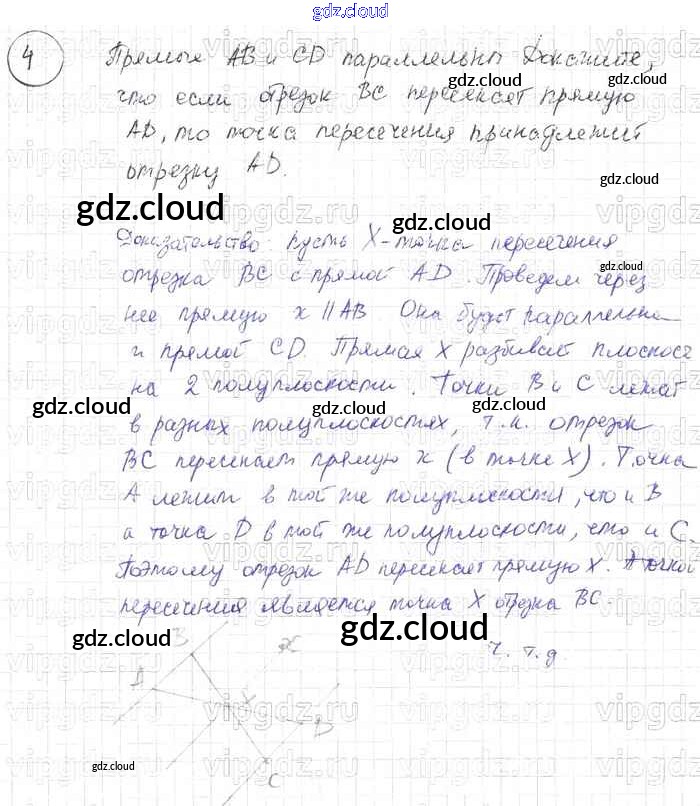 gdz.cloud
4 Прямые AB и CD параллельны Докажите,
что если отрезок BC пересекает прямую
AD, то точка пересечения принадлежит
отрезку AD.
Доказательство: пусть X-точка пересечения
отрезка BC с прямой AD. Проведем через
нее прямую x || AB. Она будет параллельна
и прямой CD. Прямая X разбивает плоскос
на 2 полуплоскости. Точки B и C лежат
в разных полуплоскостях, т.к. отрезок
BC пересекает прямую x (в точке X). Точка
A лежит в той же полуплоскости, что и B
а точка D в той же полуплоскости, что и C.
Поэтому отрезок AD пересекает прямую X.
пересечения является точка X отрезка BC.
ч.т.д.
B x
A X
D
C
gdz.cloud
gdz.cloud
gdz.cloud
gdz.cloud
gdz.cloud
gdz.cloud
gdz.cloud
gdz.cloud
gdz.cloud
gdz.cloud
gdz.cloud
gdz.cloud
gdz.cloud
vipgdz.ru